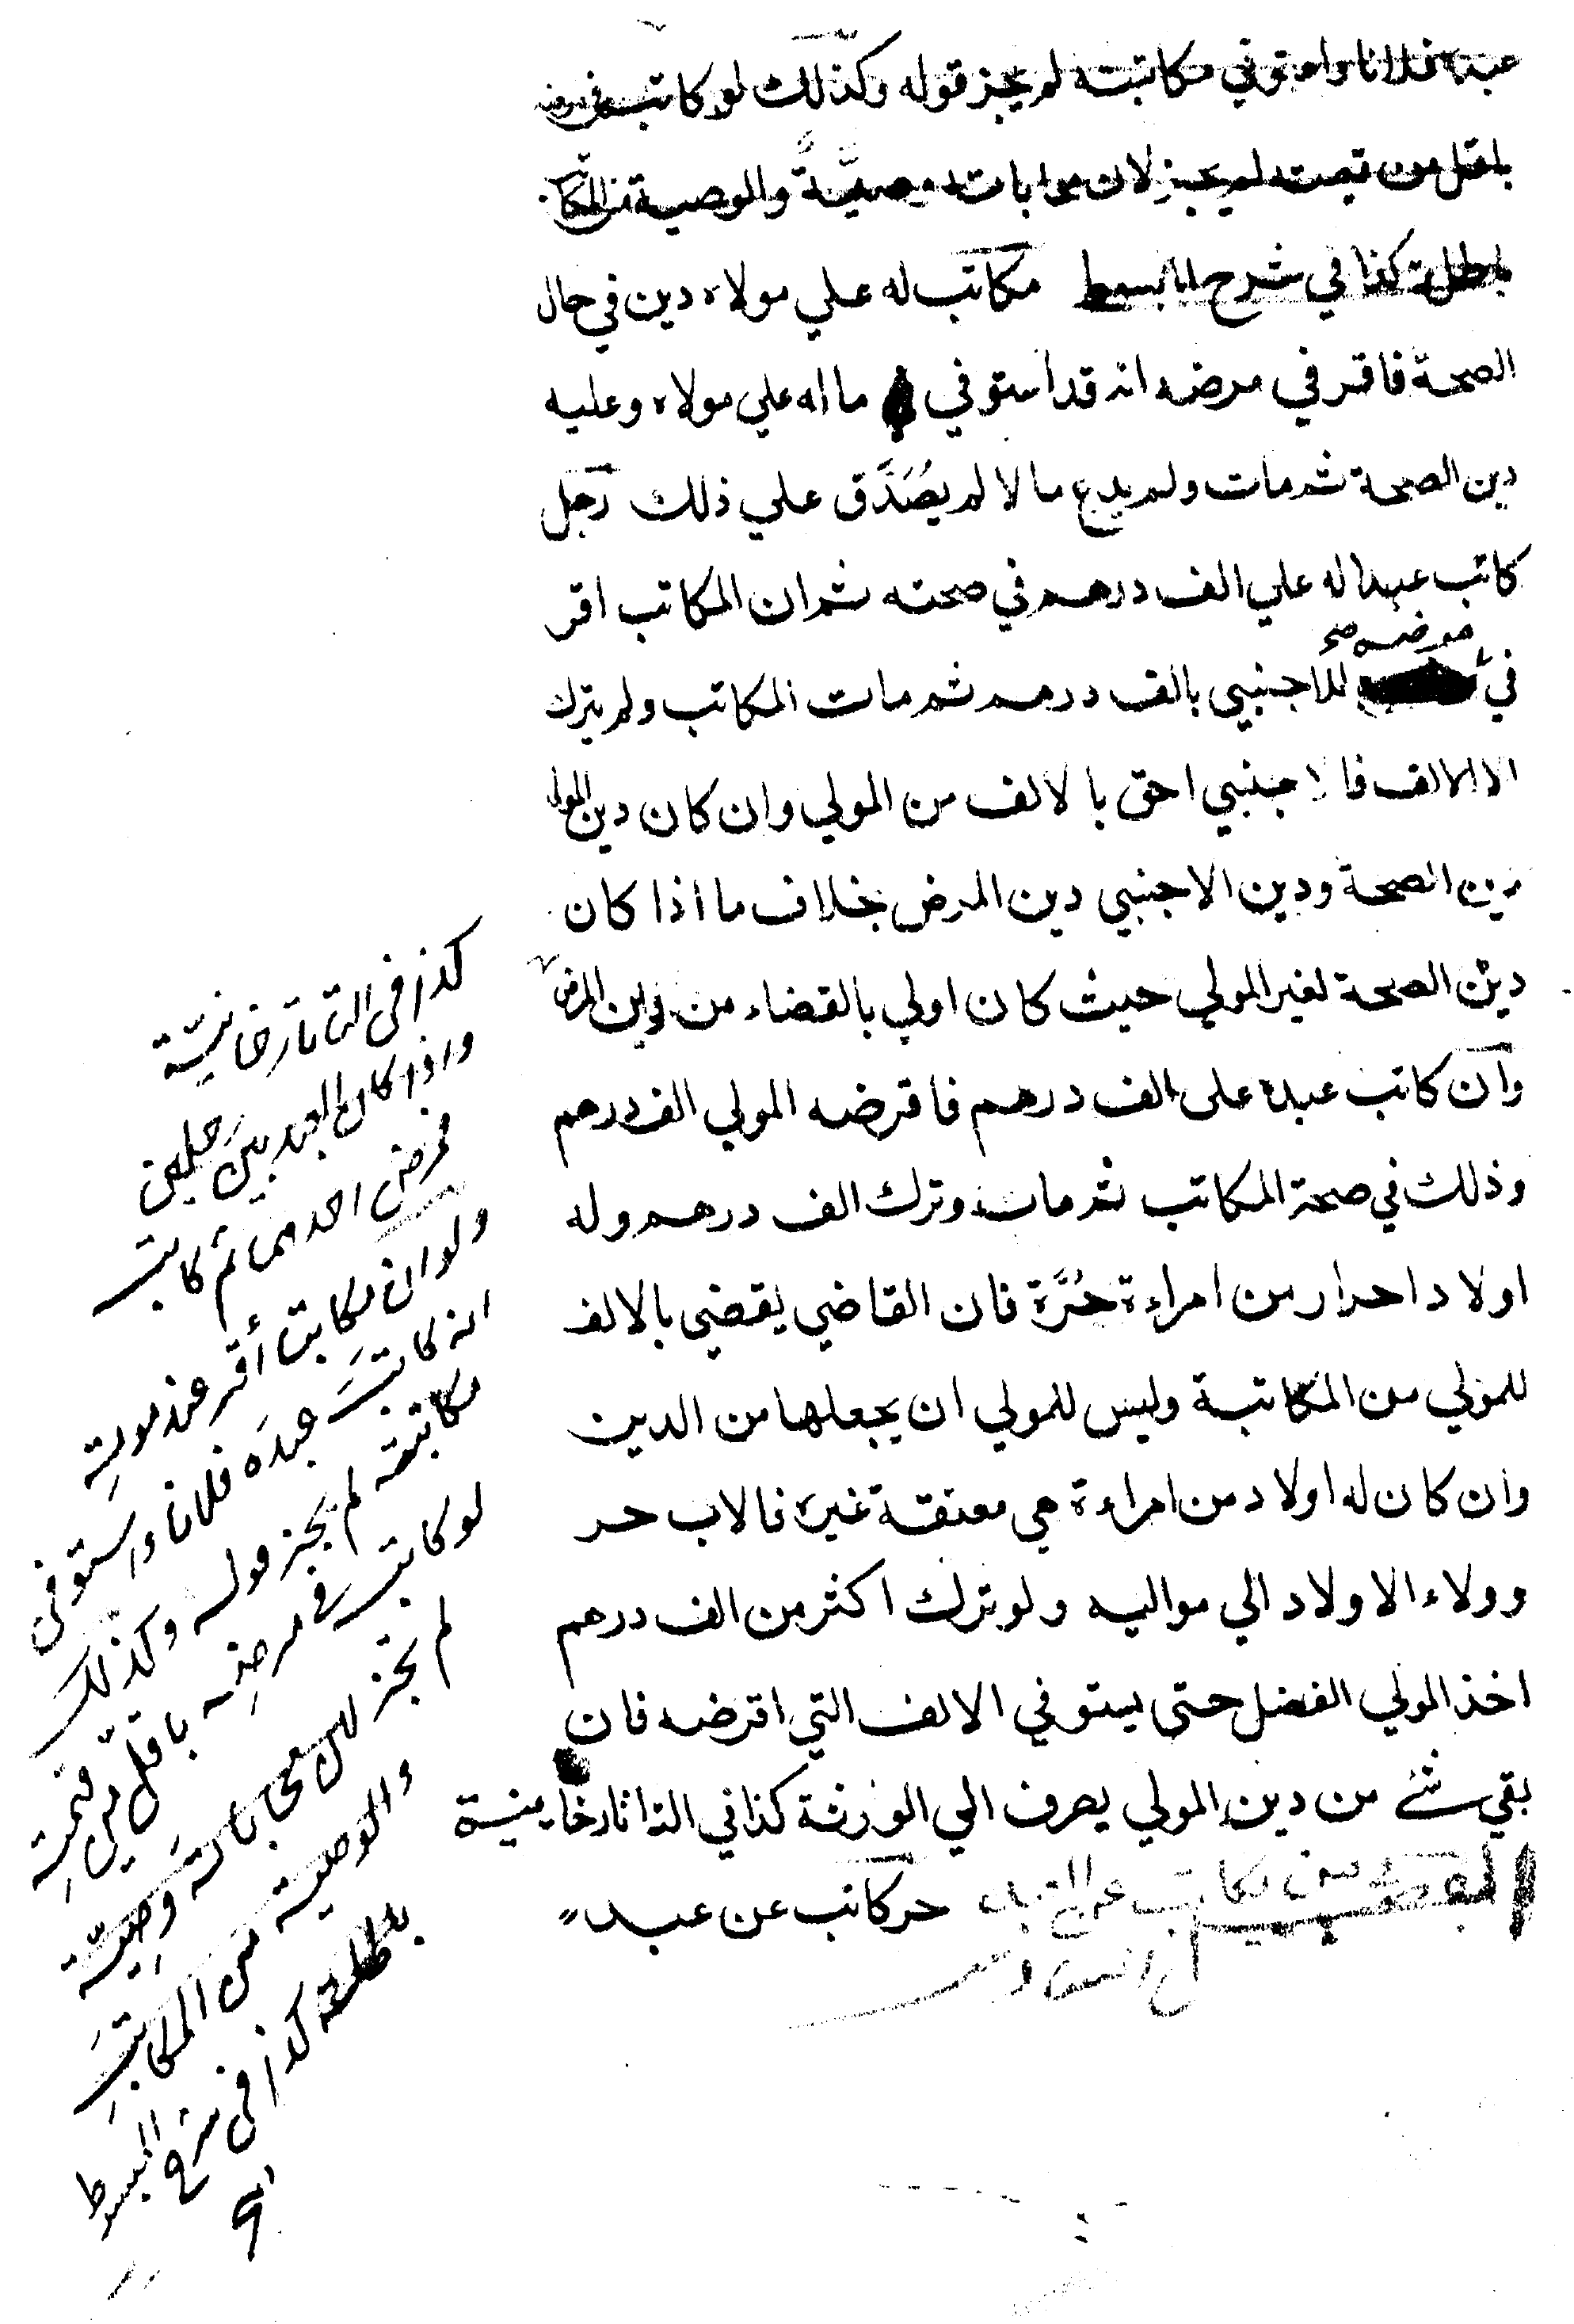 عبده فلانا واستوفي مكاتبته لم يجز قوله وكذلك لو كاتب في مرضه
باقل من قيمته لم يجز لان محاباته وصيَّةً والوصية من المكاتب
باطلة كذا في شرح المبسوط مكاتب له علي مولاه دين في حال
الصحة فاقر في مرضه انه قد استوفي ما له علي مولاه وعليه
دين الصحة ثم مات ولم يدع مالا لم يصَدَّق علي ذلك رجل
كاتب عبدا له علي الف درهم في صحته ثم ان المكاتب اقر
مرضه صح
في للاجنبي بالف درهم ثم مات المكاتب ولم يترك
الا الالف فالاجنبي احق بالالف من المولي وان كان دين المولى
دين الصحة ودين الاجنبي دين المرض بخلاف ما اذا كان
دين الصحة لغير المولي حيث كان اولي بالقضاء من دين المرض
وان كاتب عبده على الف درهم فاقرضه المولي الف درهم
وذلك في صحة المكاتب ثم مات وترك الف درهم وله
اولاد احرار من امراءة حُرَّة فان القاضي يقضي بالالف
للمولي من المكاتبة وليس للمولي ان يجعلها من الدين
وان كان له اولاد من امراءة هي معتقة غيره فالاب حر
وولاء الاولاد الي مواليه ولو ترك اكثر من الف درهم
اخذ المولي الفضل حتى يستوفي الالف التي اقرضه فان
بقي شئ من دين المولي يصرف الي الورثة كذا في التاتارخانية
حر كاتب عن عبد
كذا في التاتارخانية
واذا كان العبد بين رجلين
فمرض احدهما ثم كاتب
ولو ان مكاتبا أقر عند موته
انه كاتب عبدَه فلانا واستوفى
مكاتبته لم يجز قوله وكذلك
لو كاتب في مرضِه باقلّ من قيمتِه
لم يجز لان محاباته وَصِيّة
والوصية من المكاتب
باطلة كذا في شرح المبسوط